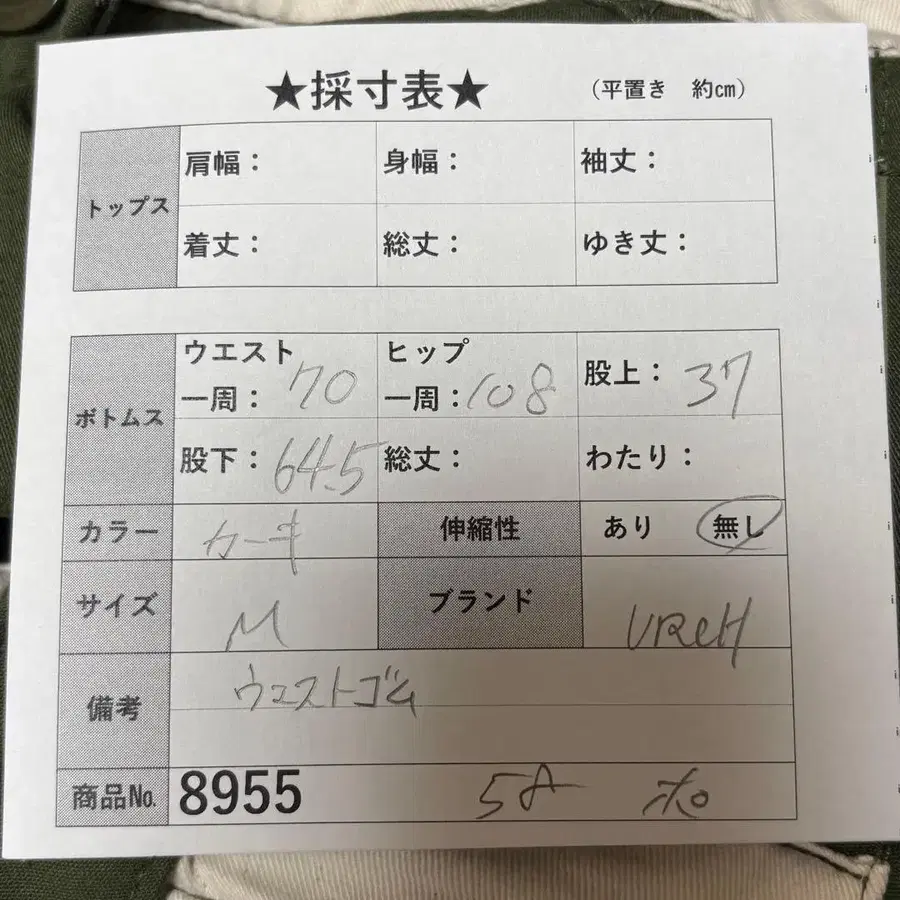 ★採寸表★ (平置き 約㎝)
トップス 肩幅： 身幅： 袖丈：
着丈： 総丈： ゆき丈：
ボトムス ウエスト一周：70 ヒップ一周：108 股上：37
股下：64.5 総丈： わたり：
カラー カーキ 伸縮性 あり 無し
サイズ M ブランド
備考 ウエストゴム
商品No. 8955